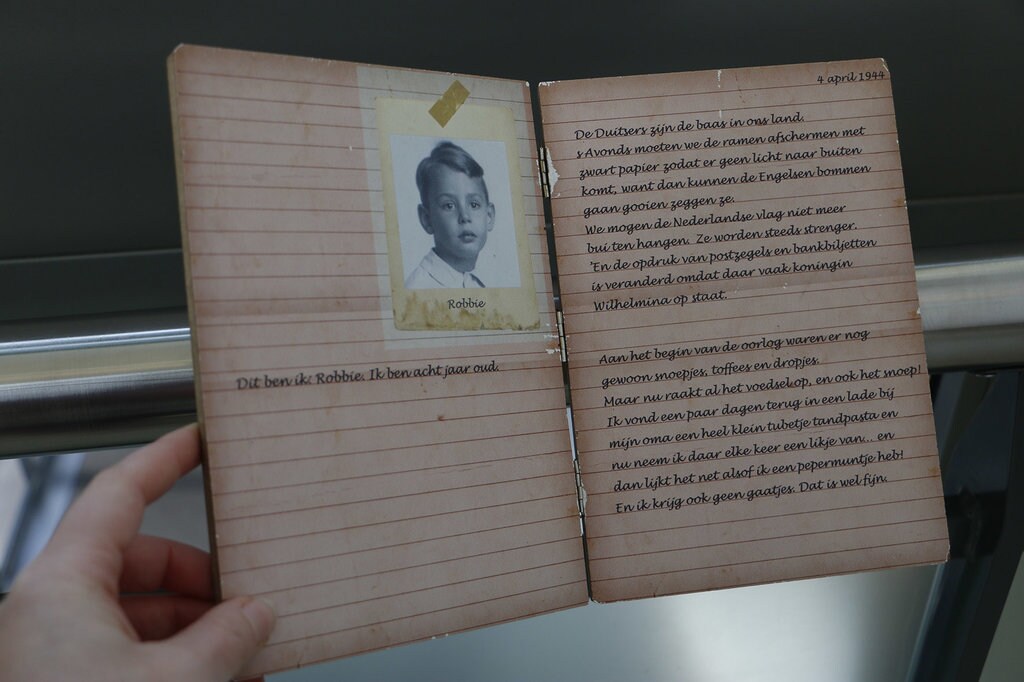 Robbie
Dit ben ik: Robbie. Ik ben acht jaar oud.
4 april 1944
De Duitsers zijn de baas in ons land.
s Avonds moeten we de ramen afschermen met
zwart papier zodat er geen licht naar buiten
komt, want dan kunnen de Engelsen bommen
gaan gooien zeggen ze.
We mogen de Nederlandse vlag niet meer
bui ten hangen. Ze worden steeds strenger.
'En de opdruk van postzegels en bankbiljetten
is veranderd omdat daar vaak koningin
Wilhelmina op staat.
Aan het begin van de oorlog waren er nog
gewoon snoepjes, toffees en dropjes.
Maar nu raakt al het voedsel op, en ook het snoep!
Ik vond een paar dagen terug in een lade bij
mijn oma een heel klein tubetje tandpasta en
nu neem ik daar elke keer een likje van... en
dan lijkt het net alsof ik een pepermuntje heb!
En ik krijg ook geen gaatjes. Dat is wel fijn.